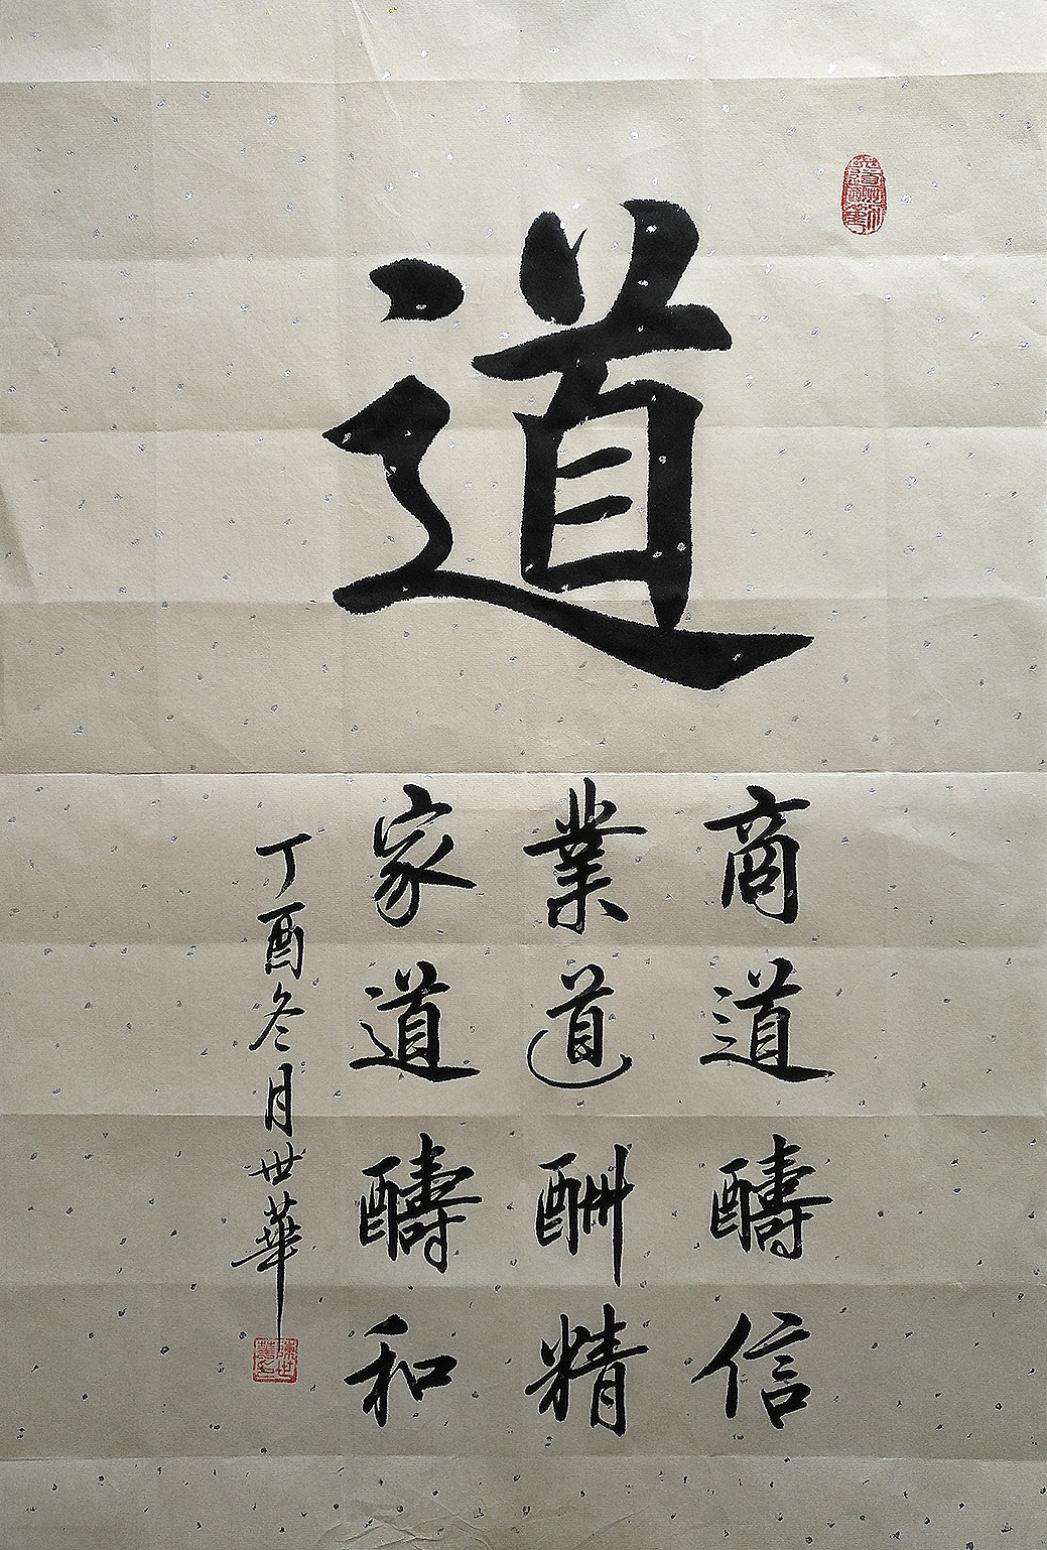 道
商道醻信
業道酬精
家道醻和
丁酉冬月世華